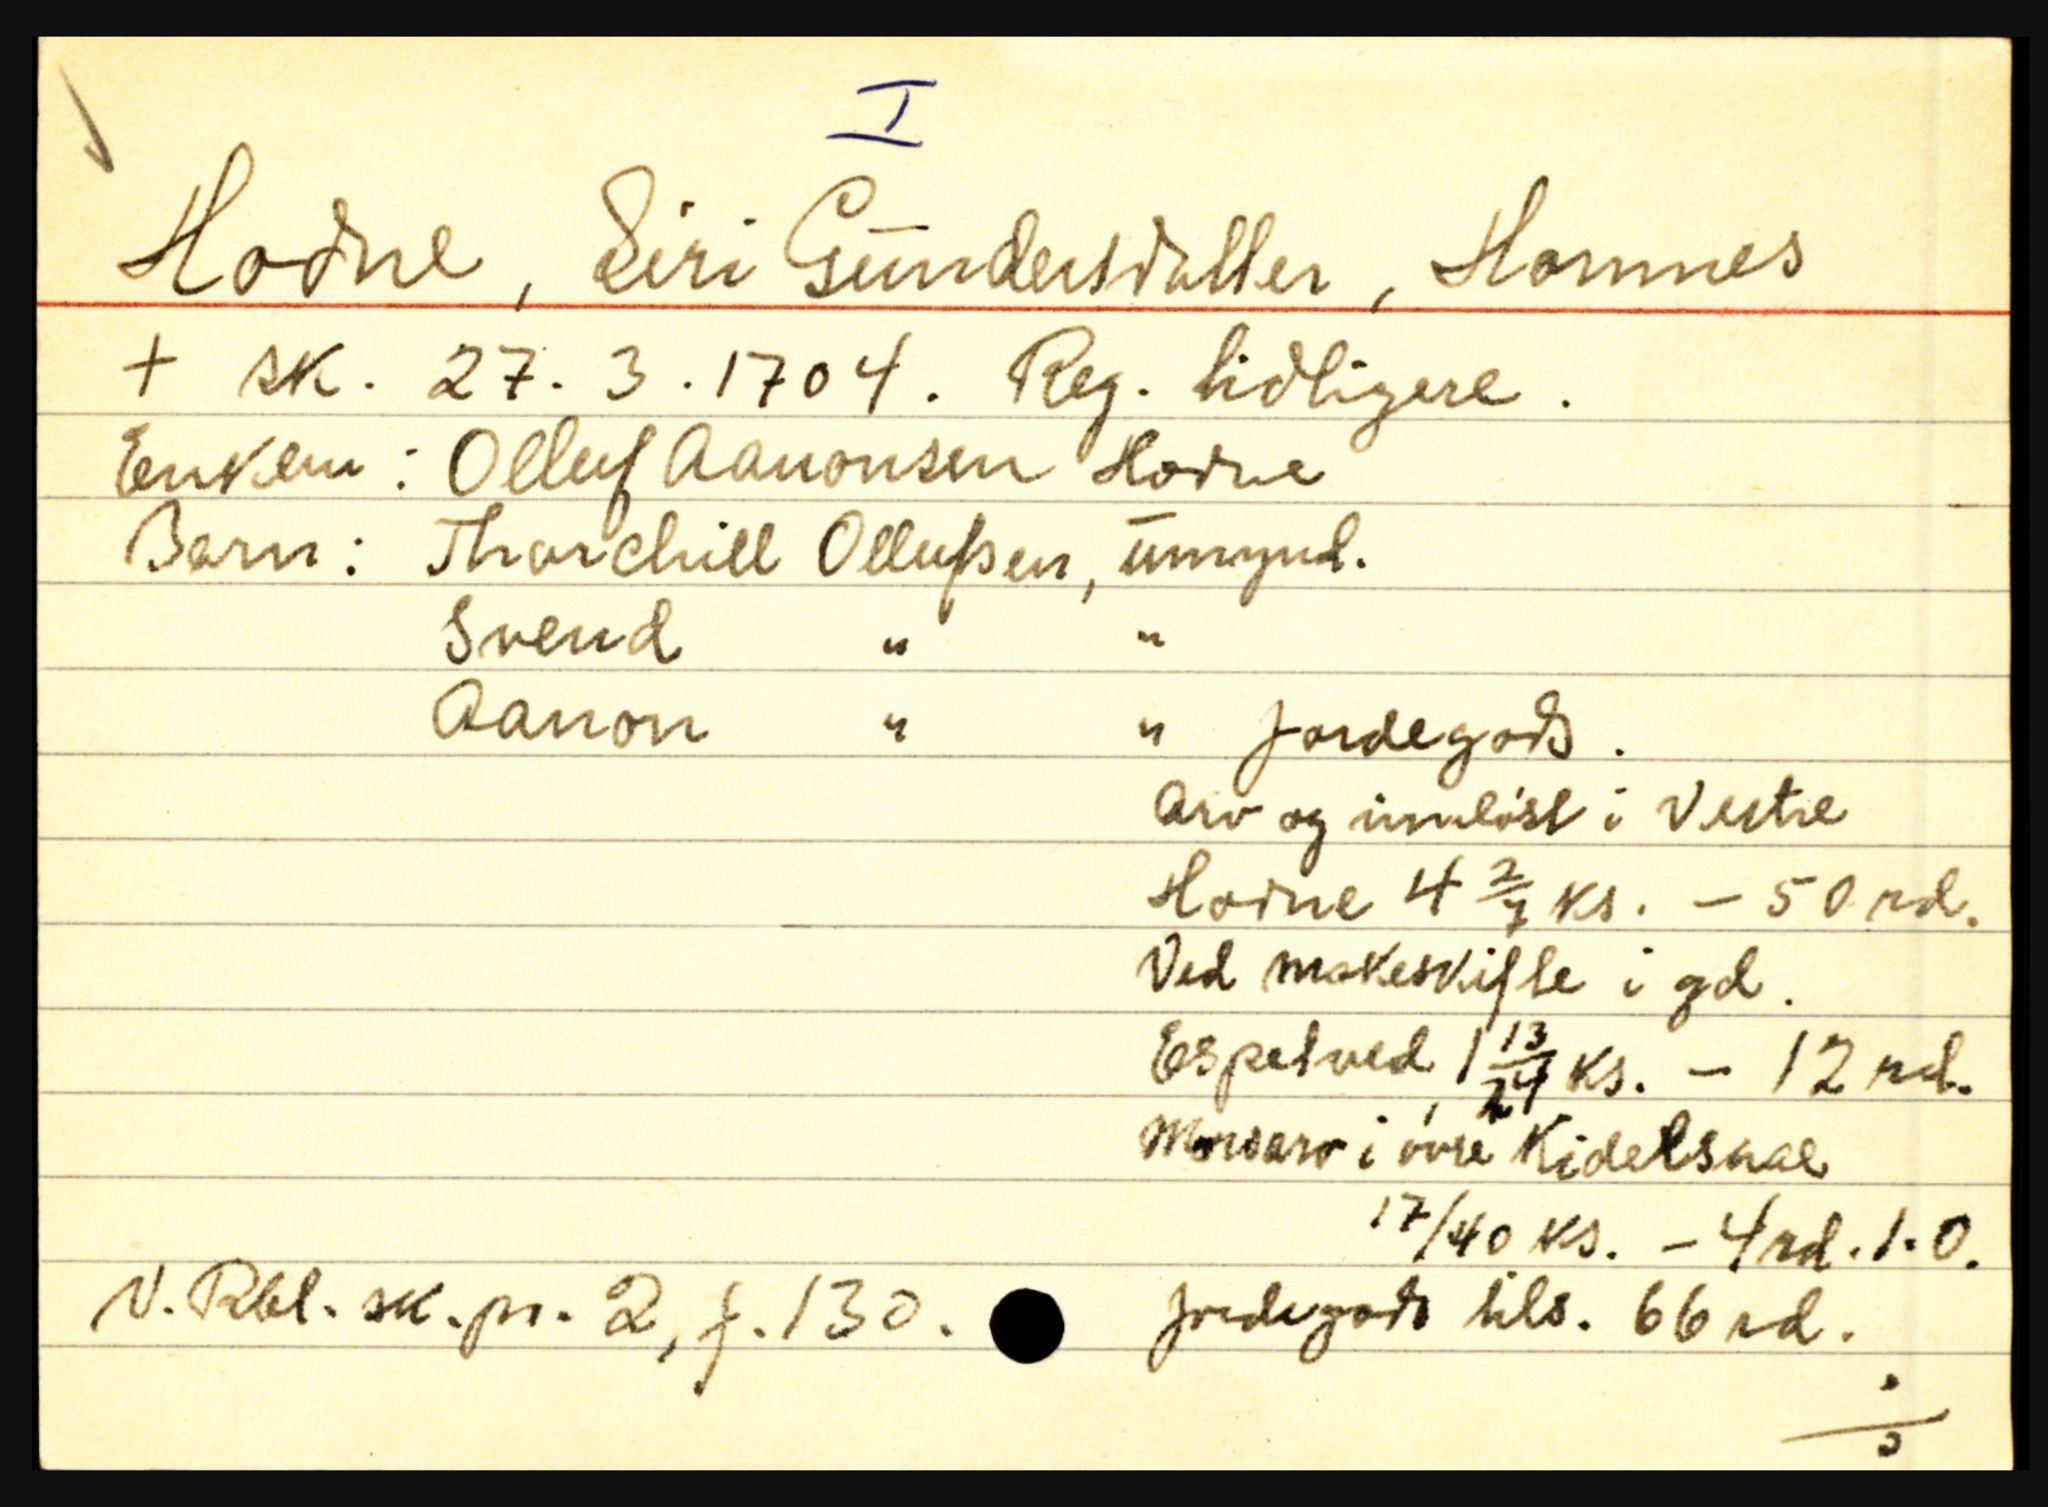 I
Hodne, Siri Gundersdatter, Homnes
+ sk. 27. 3. 1704. Reg. tidligere.
Enkem: Olluf Aanonsen Hodne
Barn: Thorchill Ollufsen, umynd.
Svend " "
Aanon " " Jordegods.
Arv og innløst i Vestre
Hodne 4 2/7 ks. - 50 rd.
Ved makeskifte i gd.
Espetved, 1 13/24 ks. - 12 rd.
Morsarv i øvre Kidelsaae
17/40 ks. - 4 rd. 1. 0.
V. Rbl. sk. pr. 2, f. 130. Jordegods tils. 66 rd.